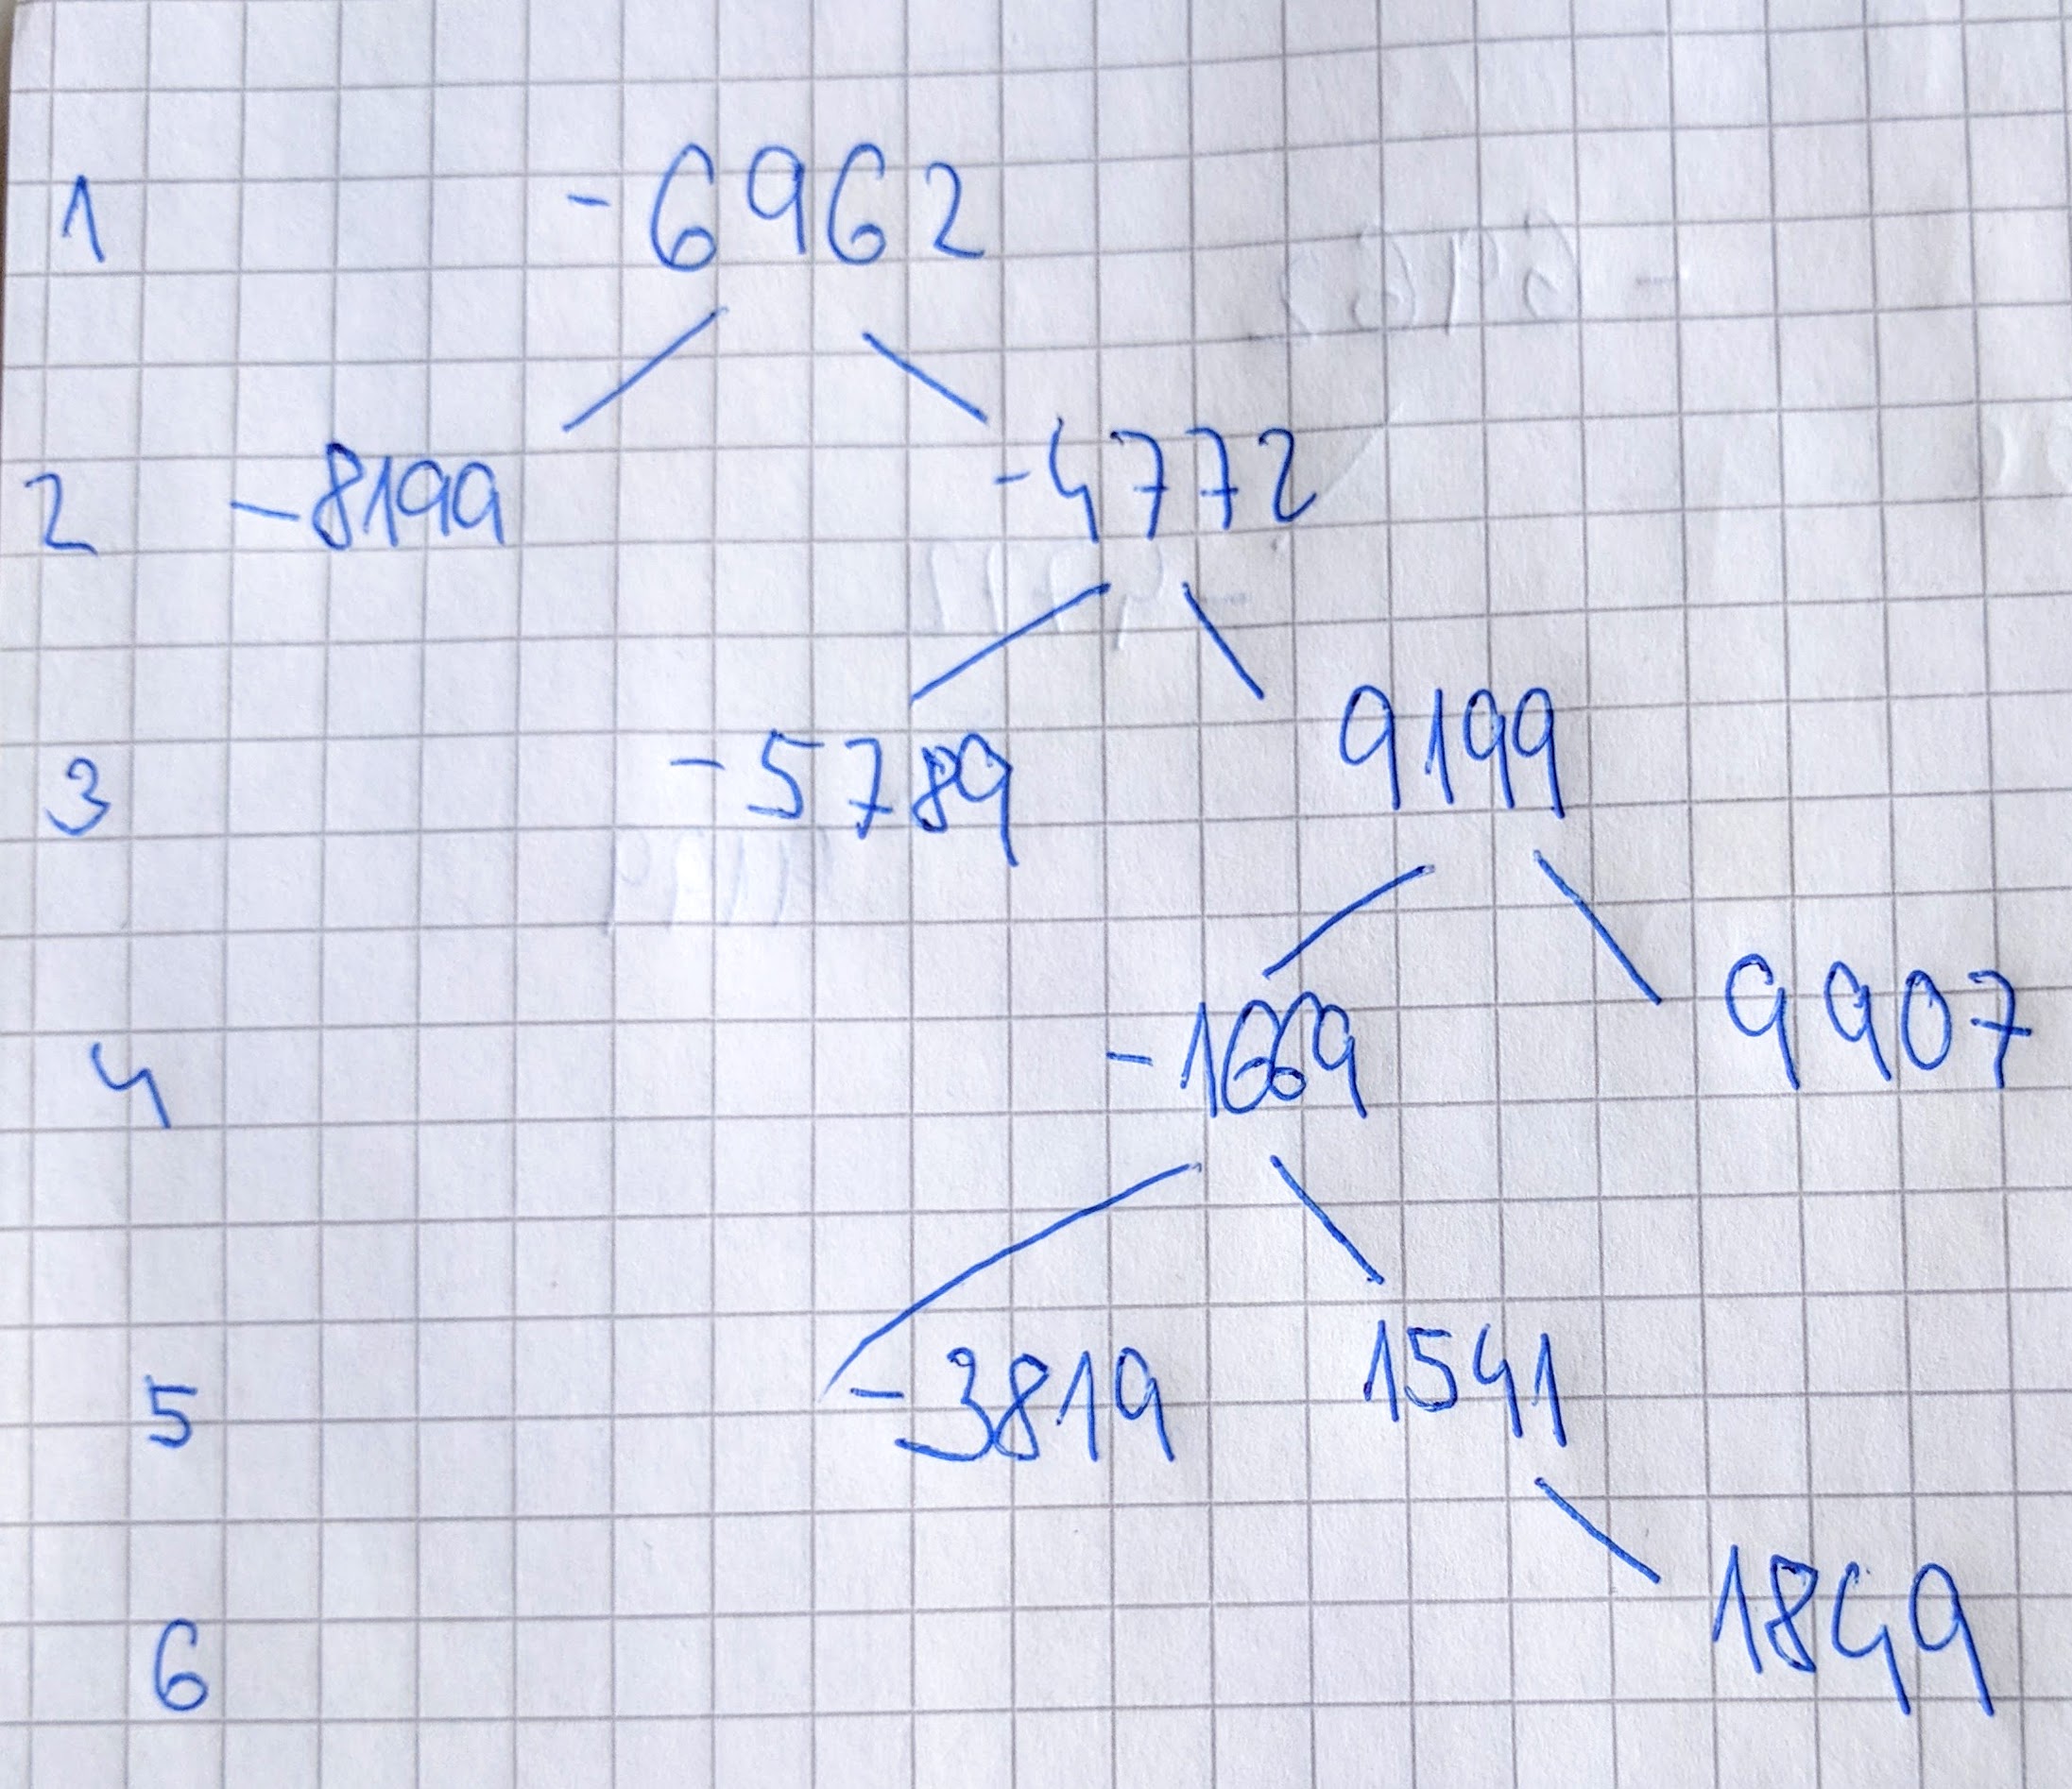 1 -6962
2 -8199 -4772
3 -5789 9199
4 -1669 9907
5 -3819 1541
6 1849